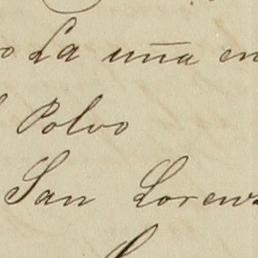 o La uña en
Polvo
San Loren